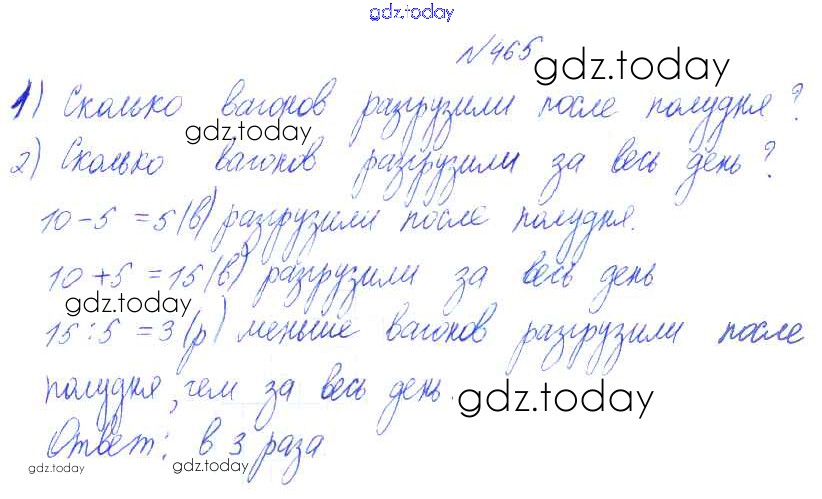 gdz.today
№465
gdz.today
1) Сколько вагонов разгрузили после полудня?
gdz.today
2) Сколько вагонов разгрузили за весь день?
10-5=5(в) разгрузили после полудня.
10+5=15(в) разгрузили за весь день
gdz.today
15:5=3(р) меньше вагонов разгрузили после
полудня, чем за весь день.
gdz.today
Ответ: в 3 раза
gdz.today gdz.today